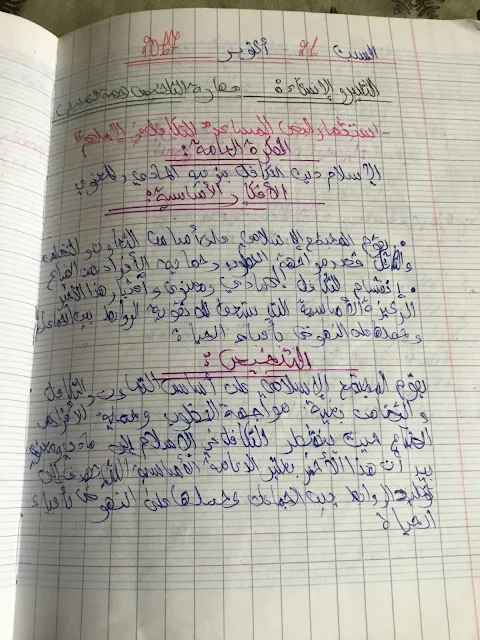 السبت 21 أكتوبر 2017
التعبير و الإنشاء مهارة التلخيص
- استثمار النص المسا عد: التكافل في الإسلام
الفكرة العامة:
الإسلام دين التكافل بنوعيه المادي والمعنوي
الأفكار الأساسية:
• يقوم المجتمع الإسلامي على أساس التعاون و التضامن
والتكافل قصد مواجهة الخطوب وحماية الأفراد من الضياع
• إنقسام التكافل إلى مادي ومعنوي و أعتبر هذا الأخير
الركيزة الأساسية التي ستحقق تقوية الروابط بين الجماعات
وحملها على النهوض بأعباء الحياة
التلخيص:
يقوم المجتمع الإسلامي على أساس التعاون والتكافل
و التضامن بغية مواجهة الخطوب وحماية الأفراد من
الضياع حيث ينشطر التكافل في الإسلام إلى مادي ومعنوي
بيد أن هذا الأخير يعتبر الدعامة الأساسية التي تهدف إلى
الروابط بين الجماعات وحملها على النهوض بأعباء
الحياة